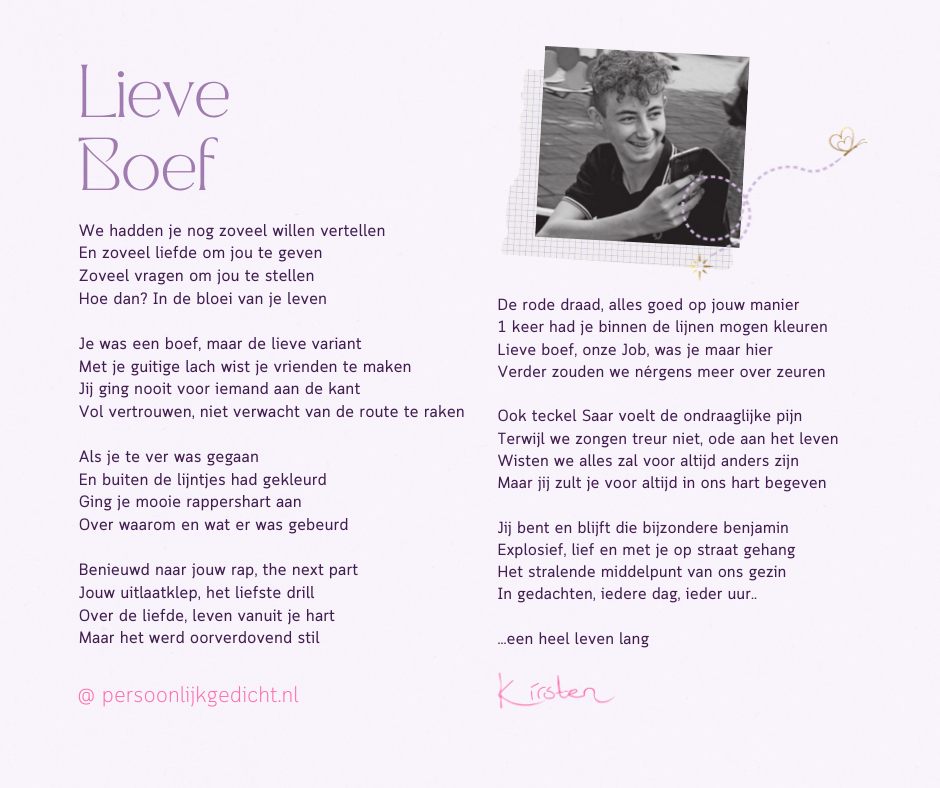 Lieve
Boef
We hadden je nog zoveel willen vertellen
En zoveel liefde om jou te geven
Zoveel vragen om jou te stellen
Hoe dan? In de bloei van je leven
Je was een boef, maar de lieve variant
Met je guitige lach wist je vrienden te maken
Jij ging nooit voor iemand aan de kant
Vol vertrouwen, niet verwacht van de route te raken
Als je te ver was gegaan
En buiten de lijntjes had gekleurd
Ging je mooie rappershart aan
Over waarom en wat er was gebeurd
Benieuwd naar jouw rap, the next part
Jouw uitlaatklep, het liefste drill
Over de liefde, leven vanuit je hart
Maar het werd oorverdovend stil
@ persoonlijkgedicht.nl
De rode draad, alles goed op jouw manier
1 keer had je binnen de lijnen mogen kleuren
Lieve boef, onze Job, was je maar hier
Verder zouden we nérgens meer over zeuren
Ook teckel Saar voelt de ondraaglijke pijn
Terwijl we zongen treur niet, ode aan het leven
Wisten we alles zal voor altijd anders zijn
Maar jij zult je voor altijd in ons hart begeven
Jij bent en blijft die bijzondere benjamin
Explosief, lief en met je op straat gehang
Het stralende middelpunt van ons gezin
In gedachten, iedere dag, ieder uur..
...een heel leven lang
Kirsten